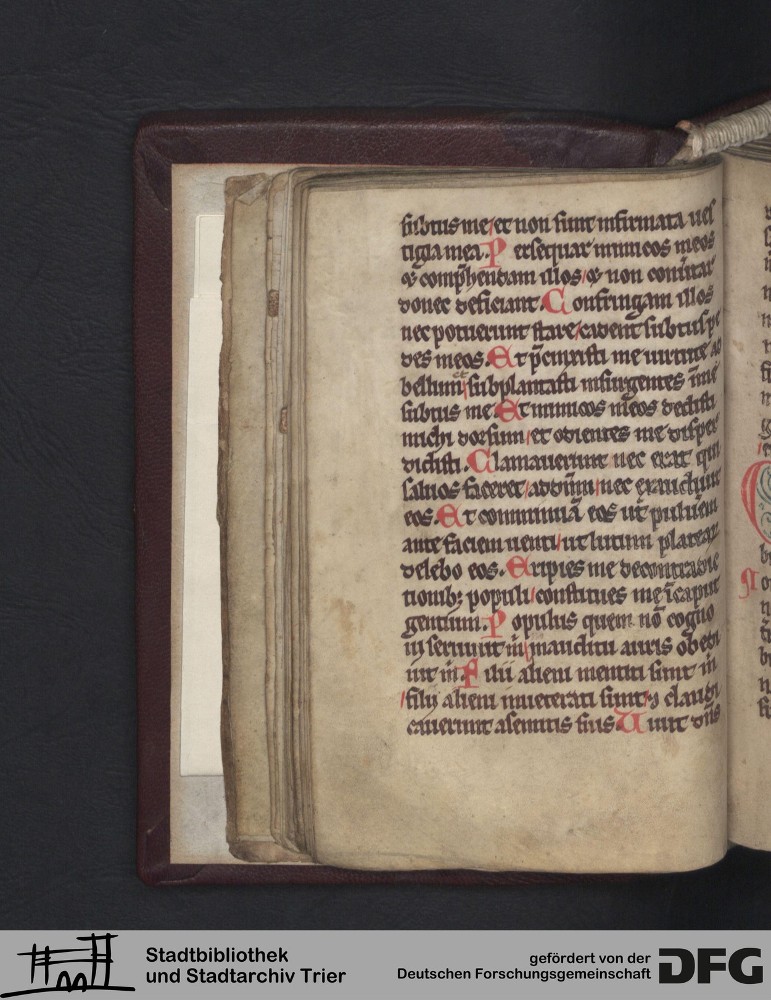 subtus me et non sunt infirmata ues
tigia mea. Persequar inimicos meos
& comp̄hendam illos & non conuertar
donec deficiant. Confringam illos
nec potuerunt stare cadent subtus pe
des meos. Et p̄cinxisti me uirtute ad
bellum et subplantasti insurgentes ī me
subtus me Et inimicos meos dedisti
michi dorsum et odientes me disper
didisti. Clamauerunt nec erat qui
saluos faceret ad dn̄m nec exaudiuit
eos. Et comminuā eos ut puluerem
ante faciem uenti ut lutum platearum
delebo eos. Eripies me de contradic
tionib; populi constitues me ī caput
gentium. Populus quem nō cogno
ui seruiuit m̄ in auditu auris obedi
uit m̄. Filii alieni mentiti sunt m̄
filij alieni inueterati sunt & claudi
cauerunt a semitis suis Uiuit dn̄s
Stadtbibliothek
und Stadtarchiv Trier
gefördert von der
Deutschen Forschungsgemeinschaft
DFG